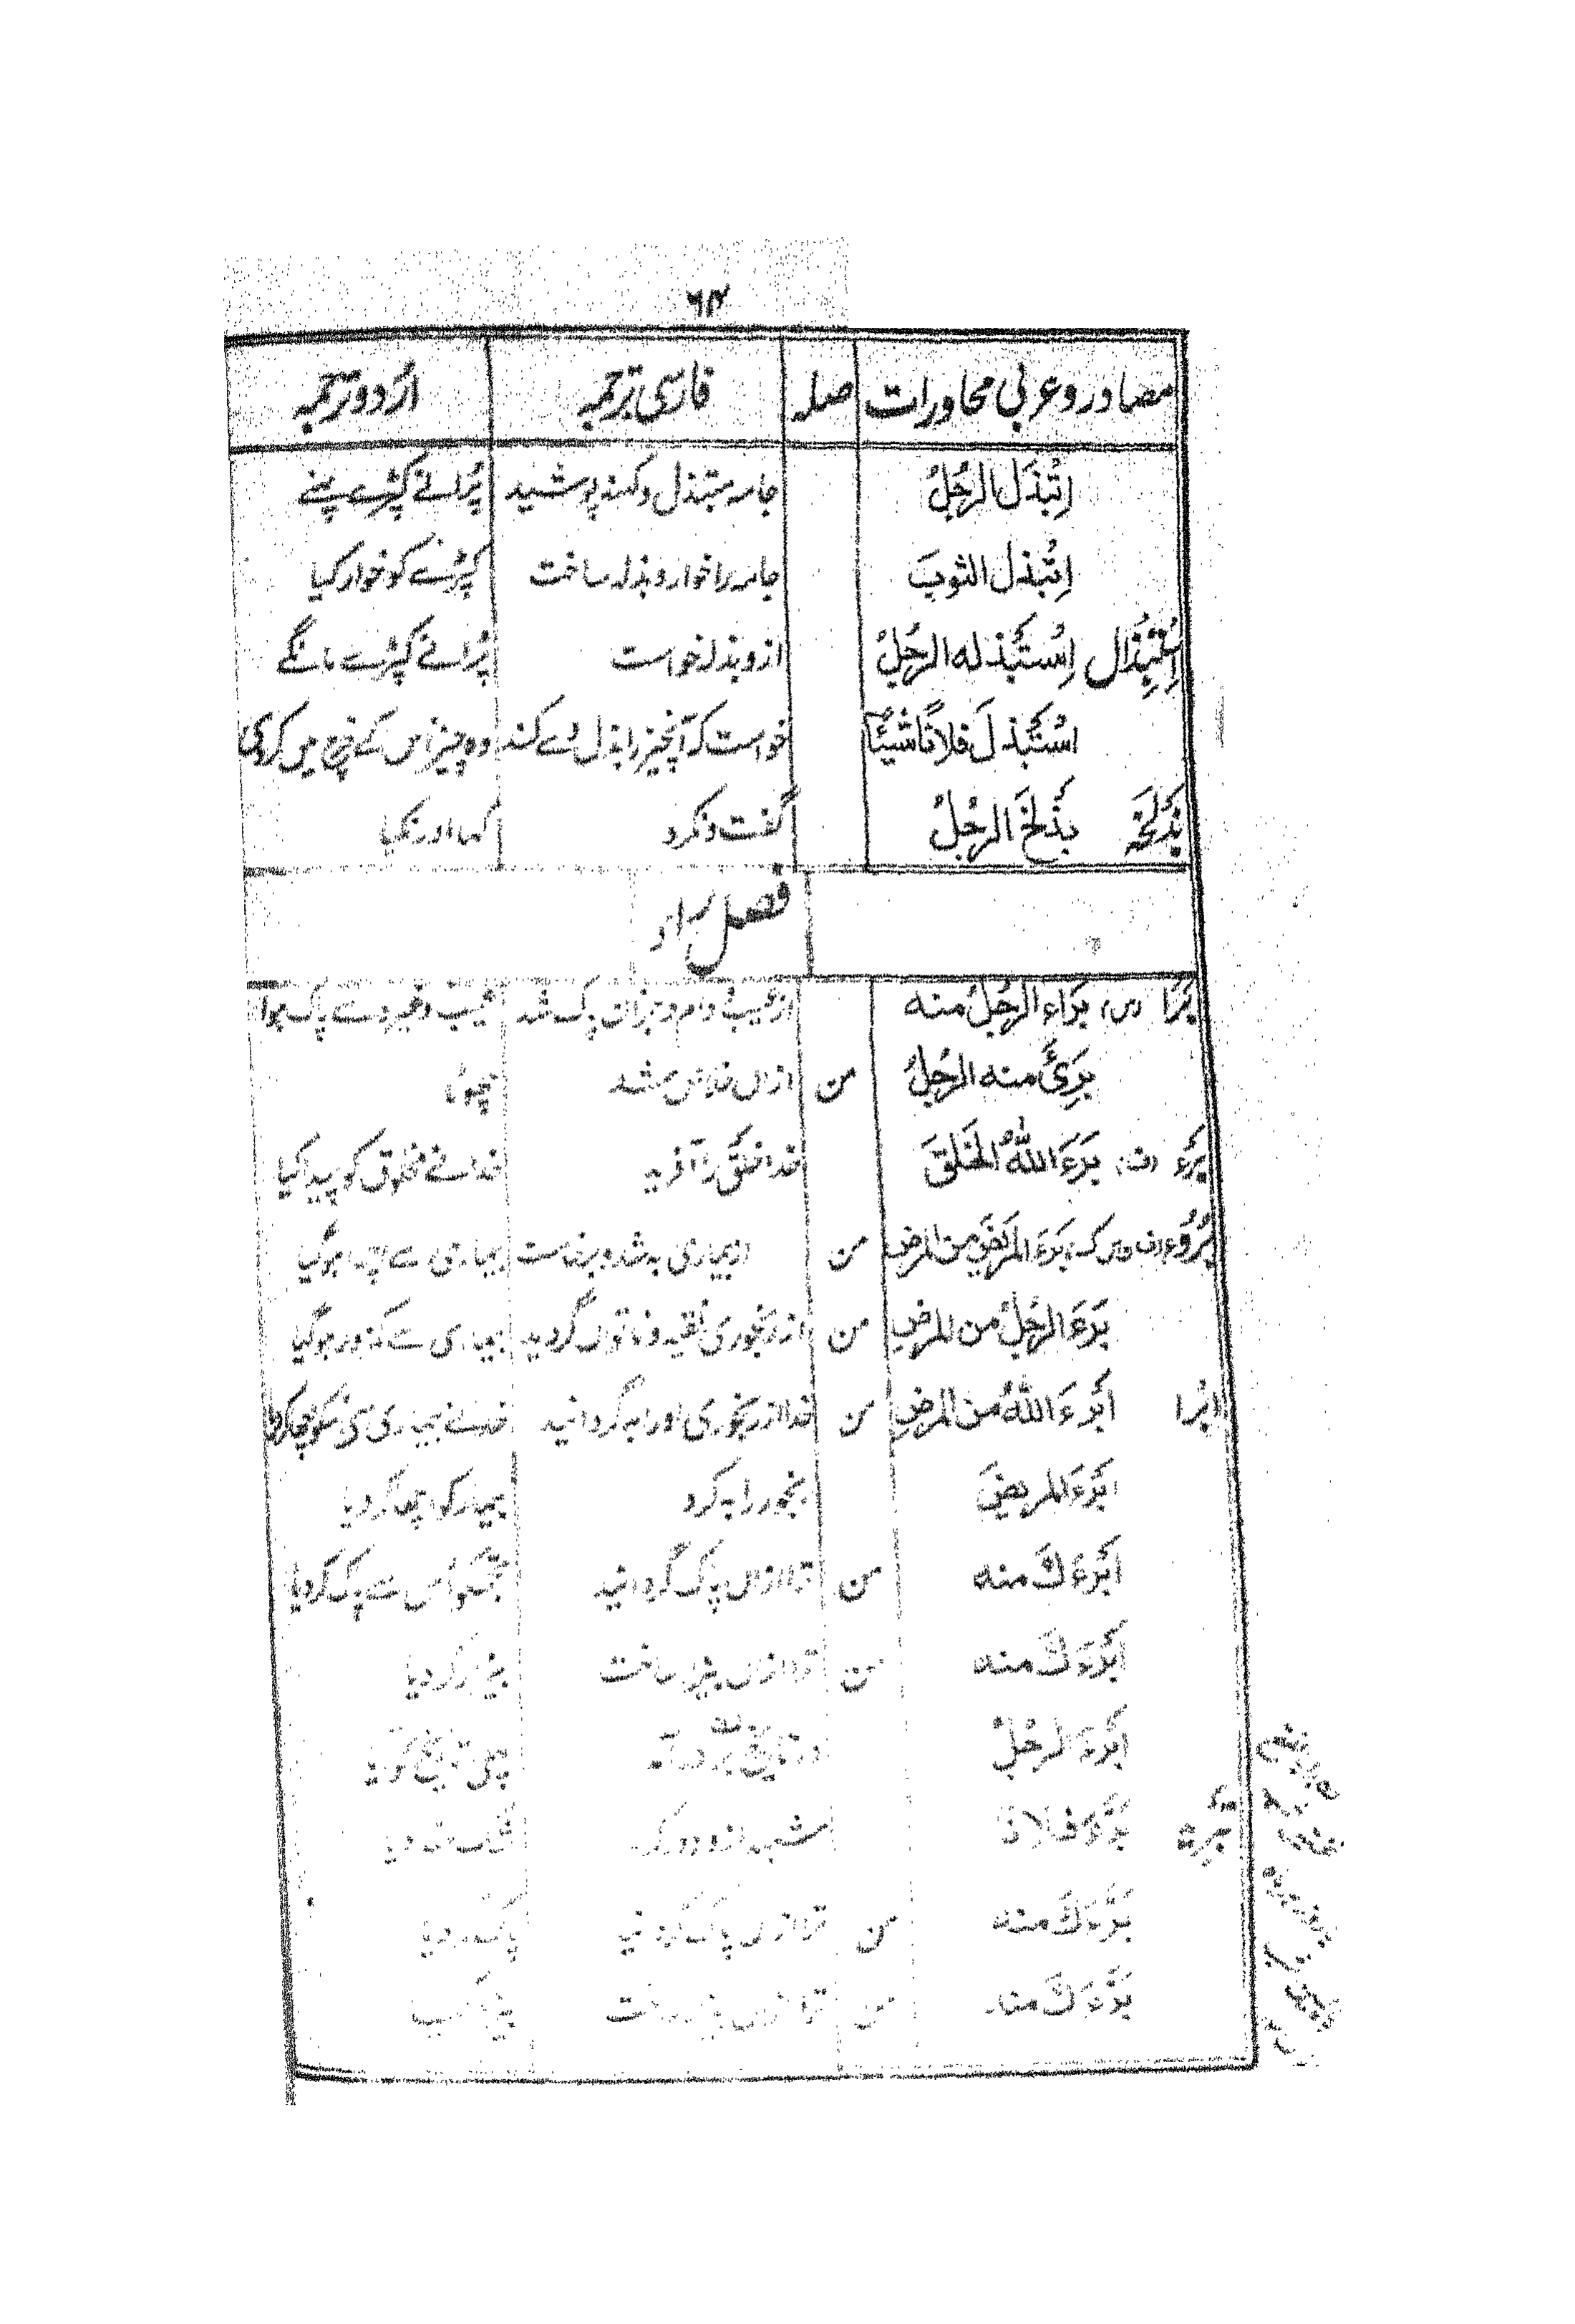 ۶۴
مصادر و عربی محاورات صلہ فارسی ترجمہ اُردو ترجمہ
اِبْتَذَلَ الرَّجُلُ جامہ مبتذل و کہنہ پوشید پُرانے کپڑے پہنے
اِبْتَذَلَ الثوبَ جامہ را خوار و بذلہ ساخت کپڑے کو خوار کیا
اِسْتِبْذَال اِسْتَبْذَلَهُ الرجُلُ ازو بذلہ خواست پُرانے کپڑے مانگے
اسْتَبْذَلَ فلانًا شيئًا خواست کہ آنچیز را بذل کند وہ چیز اس کے خرچ میں کر دی
بَذْلَخَہ بَذْلَخَ الرجُلُ گفت و نکرد کہا اور نکیا
فصل راء
بَرَا (س) بَرَاء الرجُلُ منه از عیب و وام و جزان پاک شد عیب وغیرہ سے پاک ہوا
بَرِئَ منه الرجُلُ من ازاں خلاص شد چھوٹا
بَرْء (ف) بَرَءَ اللهُ الخَلقَ خدا خلق را آفرید خدا نے مخلوق کو پیدا کیا
بُرُوء بَرَءَ المَرِيضُ من المرضِ من از بیماری بہ شد و برخاست بیماری سے اچھا ہوگیا
بَرَءَ الرجُلُ من المرضِ من از رنجوری نقیہ و ناتواں گردید بیماری سے کمزور ہوگیا
ابْرا أبْرَءَ اللهُ من المرضِ من خدا از رنجوری او را بہ گردانید
أبْرَءَ المريضَ رنجور را بہ کرد بیمار کو اچھا کر دیا
أبْرَءَكَ منه من ترا ازاں پاک گردانید تجھکو اُس سے پاک کردیا
أبْرَءَكَ منه من ترا ازاں بیزار ساخت بیزار کر دیا
أبْرَءَ الرجُلُ
بَرَّءَ فلانًا
بَرَّءَكَ منه من ترا ازاں پاک گردانید پاک کر دیا
بَرَّءَكَ منه من ترا ازاں بیزار ساخت